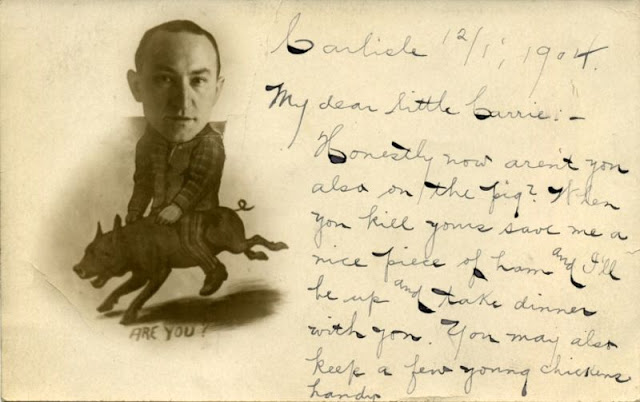 Carlisle 12/1, 1904.
My dear little Carrie:-
Honestly now aren't you
also on the pig? When
you kill yours save me a
nice piece of ham and I'll
be up and take dinner
with you. You may also
keep a few young chickens
handy
ARE YOU?